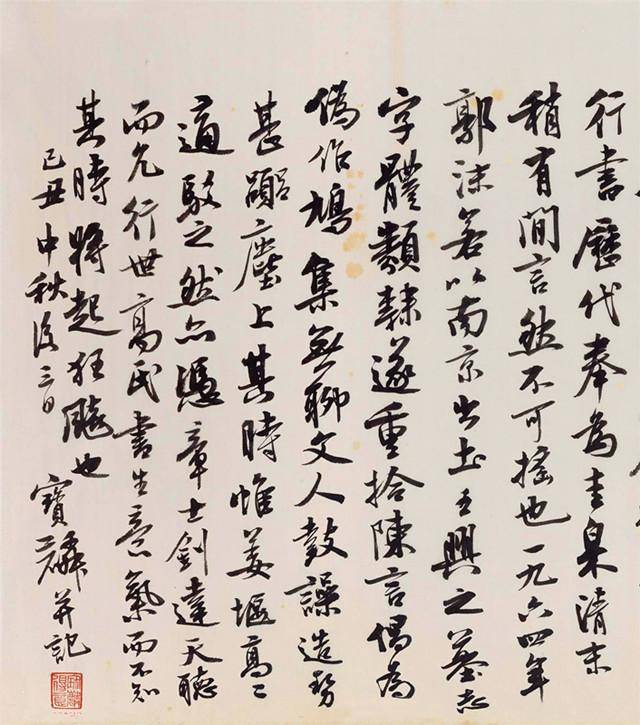 行書歷代奉為圭臬清末
稍有間言然不可搖也一九六四年
郭沫若以南京出土王興之墓志
字體類隸遂重拾陳言為
偽作鳩集無聊文人鼓譟造勢
甚囂塵上其時惟姜堰高二
適駁之然亦憑章士釗達天聽
而允行世高氏書生意氣而不知
其時將起狂飈也
己丑中秋後三日
寶麟并記